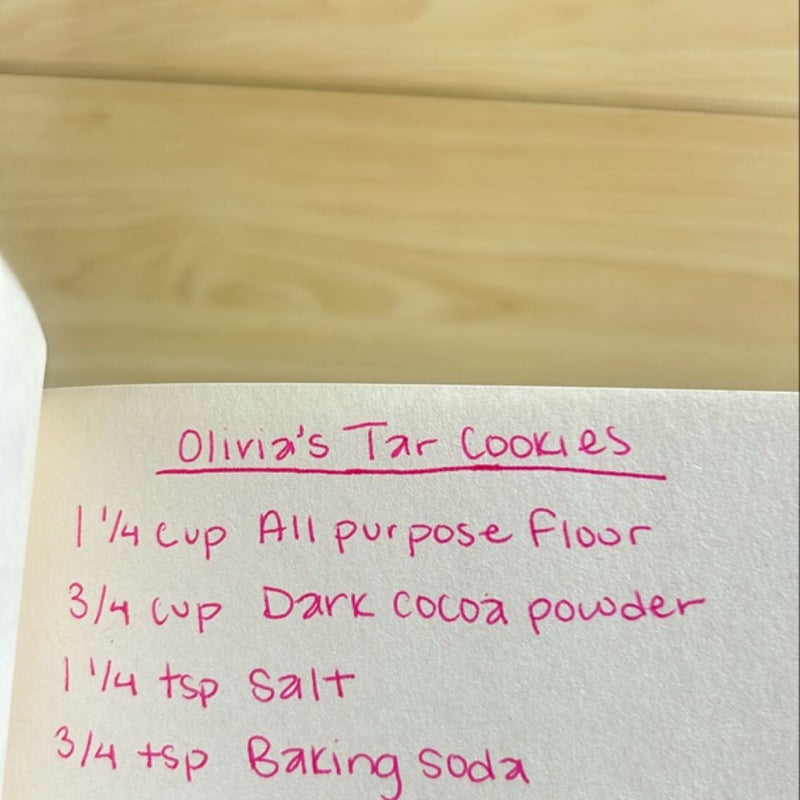 Olivia's Tar Cookies
1 1/4 cup All purpose flour
3/4 cup Dark cocoa powder
1 1/4 tsp Salt
3/4 tsp Baking soda